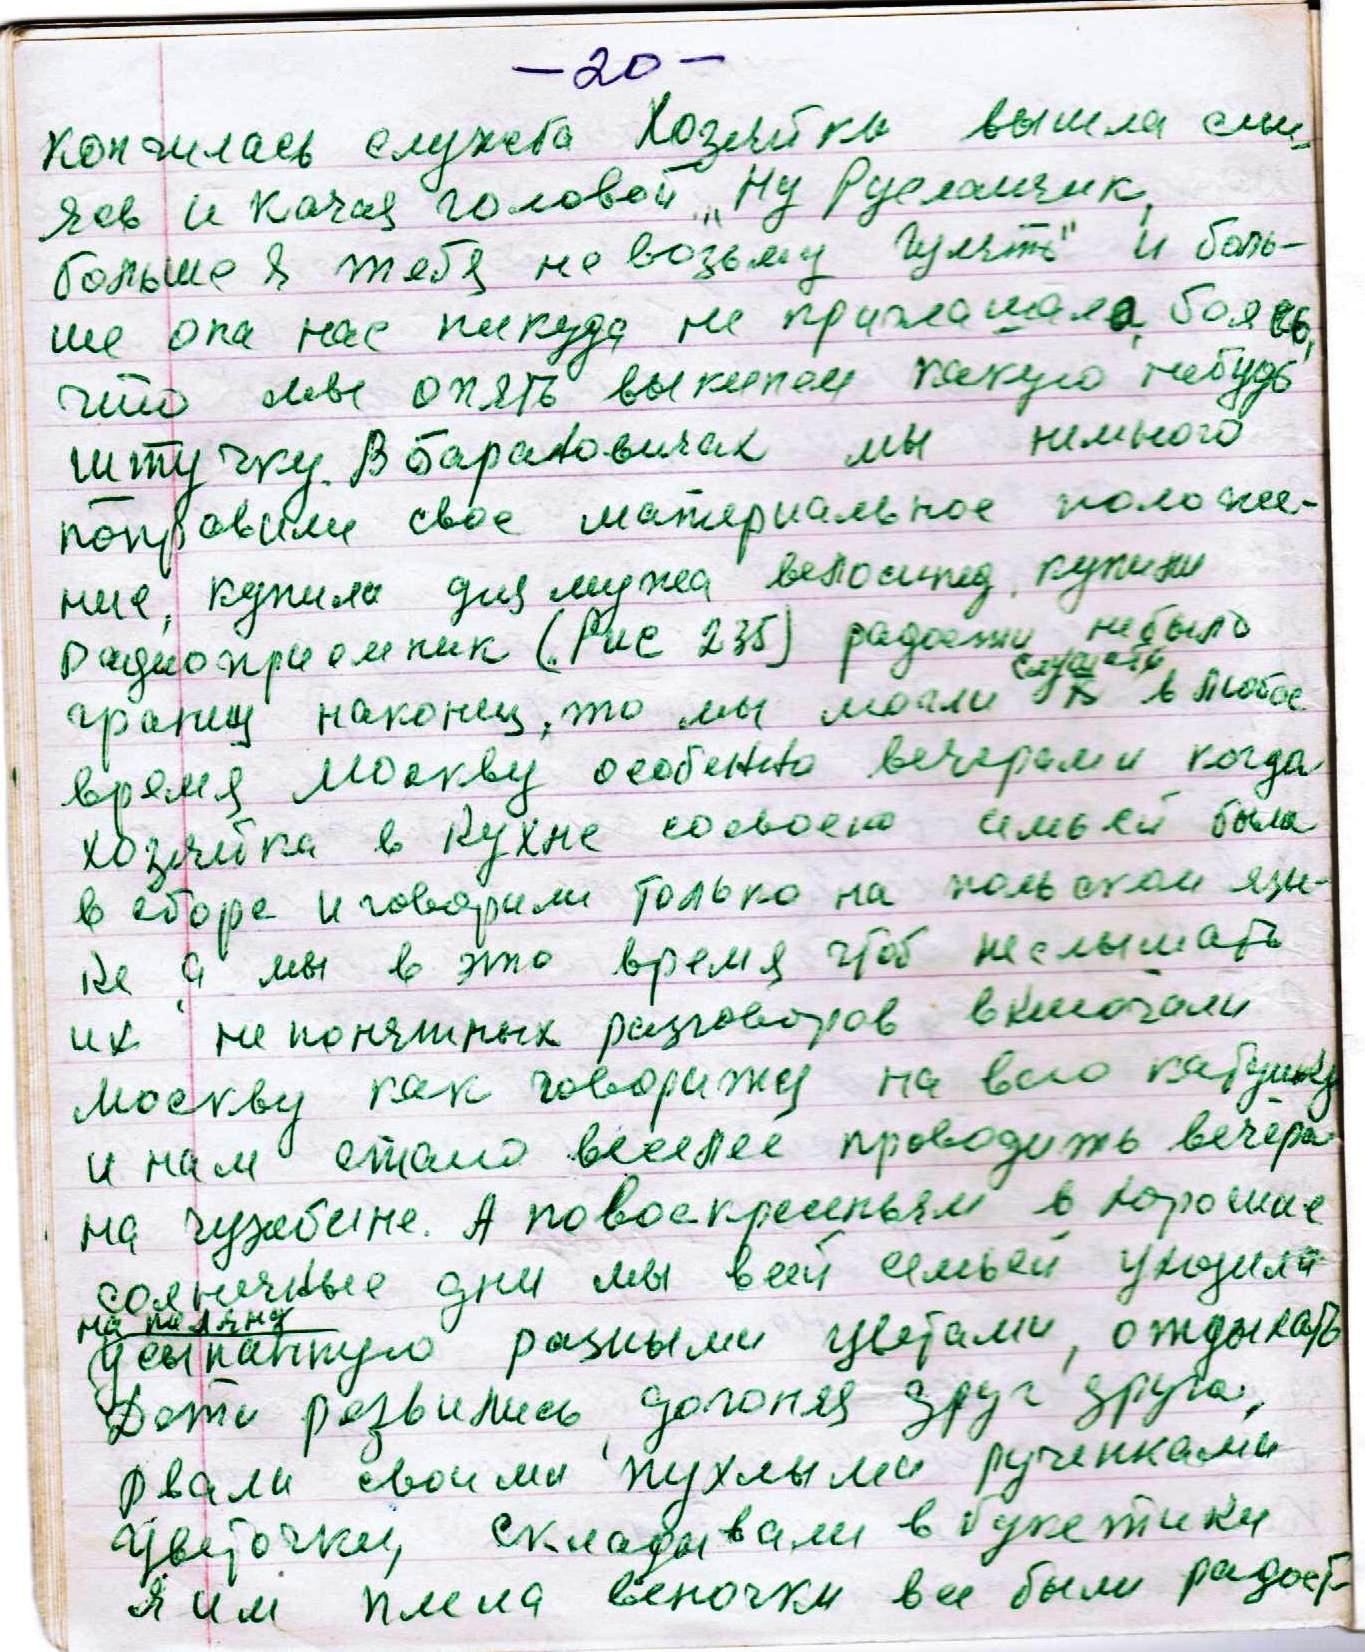 -20-
Кончилась служба Хозяйка вышла сме-
ясь и качая головой „Ну Русланчик,
больше я тебя не возьму гулять" и боль-
ше она нас никуда не приглашала, боясь,
что мы опять выкинем какую нибудь
штучку. В Барановичах мы немного
поправили свое материальное положе-
ние, купили для мужа велосипед, купили
Радиоприемник (Рис 235) радости небыло
границ наконец, то мы могли слушать в любое
время Москву особенно вечерами когда
хозяйка в кухне сосвоею семьей была
в сборе и говорили только на польском язы-
ке а мы в это время чтоб неслышать
их непонятных разговоров включали
Москву как говорижу на всю катушку
и нам стало веселее проводить вечера
на чужбине. А повоскресеньям в хорошие
солнечные дни мы всей семьей уходили
на поляну
усыпанную разными цветами, отдыхать
Дети резвились, догоняя друг друга,
рвали своими пухлыми рученками
цветочки, складывали в букетики
Я им плела веночки все были радост-